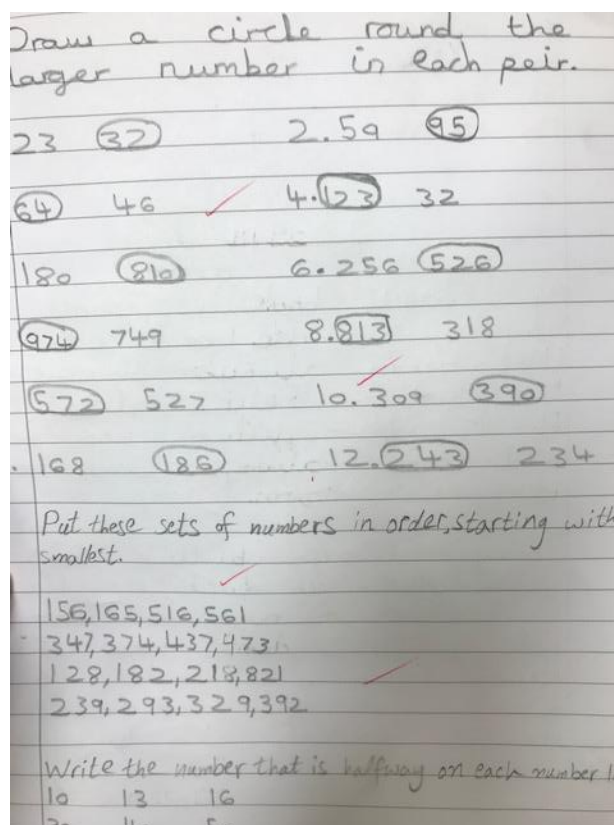 Draw a circle round the
larger number in each peir.
23 32 2. 59 95
64 46 4. 123 32
180 810 6. 256 526
974 749 8. 813 318
572 527 10. 309 390
. 168 186 12. 243 234
Put these sets of numbers in order, starting with
smallest.
156, 165, 516, 561
347, 374, 437, 473
128, 182, 218, 821
239, 293, 329, 392
Write the number that is halfway on each number
10 13 16